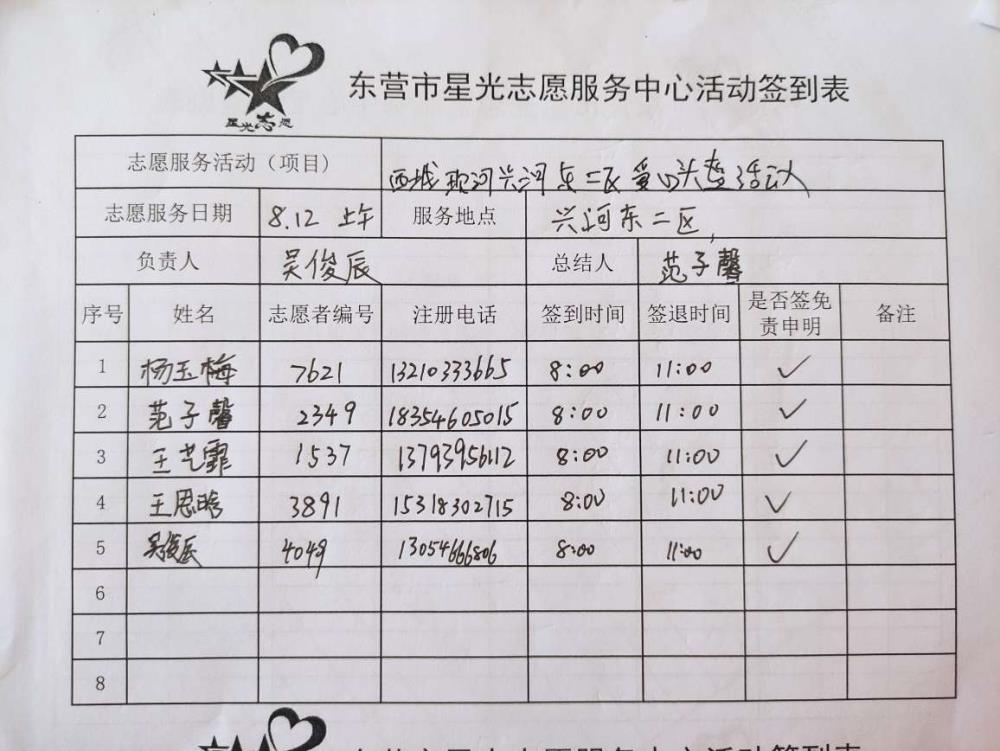 星光志愿
东营市星光志愿服务中心活动签到表
志愿服务活动（项目） 西城 兴河东二区爱心 活动
志愿服务日期 8.12 上午 服务地点 兴河东二区,
负责人 吴俊辰 总结人 范子馨
序号 姓名 志愿者编号 注册电话 签到时间 签退时间 是否签免责申明 备注
1 杨玉梅 7621 13210333665 8:00 11:00 ✓
2 范子馨 2349 18354605015 8:00 11:00 ✓
3 王艺霏 1537 13793956112 8:00 11:00 ✓
4 王思晗 3891 15318302715 8:00 11:00 ✓
5 吴俊辰 4049 13054666806 8:00 11:00 ✓
6
7
8
东营市星光志愿服务中心活动签到表